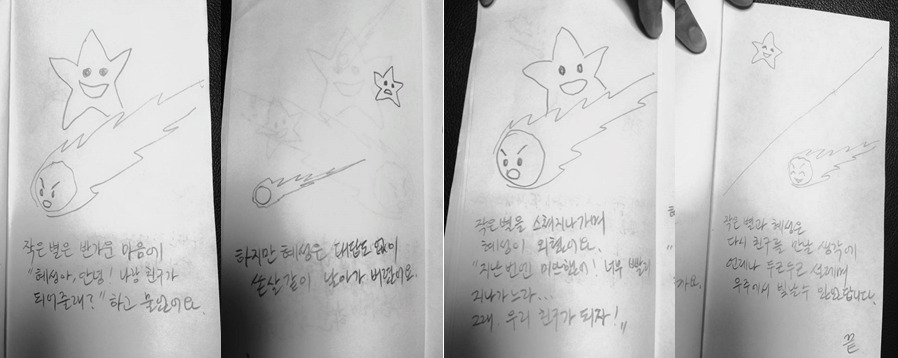 작은 별은 반가운 마음에
"혜성아, 안녕! 나랑 친구가
되어줄래?" 하고 물었어요.
하지만 혜성은 대답도 없이
쏜살같이 날아가 버렸어요.
작은 별을 스쳐지나가며
혜성이 외쳤어요.
"지난 번엔 미안했어! 너무 빨리
지나가느라...
그래 우리 친구가 되자!"
가요.
작은 별과 혜성은
다시 친구를 만날 생각에
언제나 두근두근 설레며
우주에서 빛날 수 있었답니다.
끝